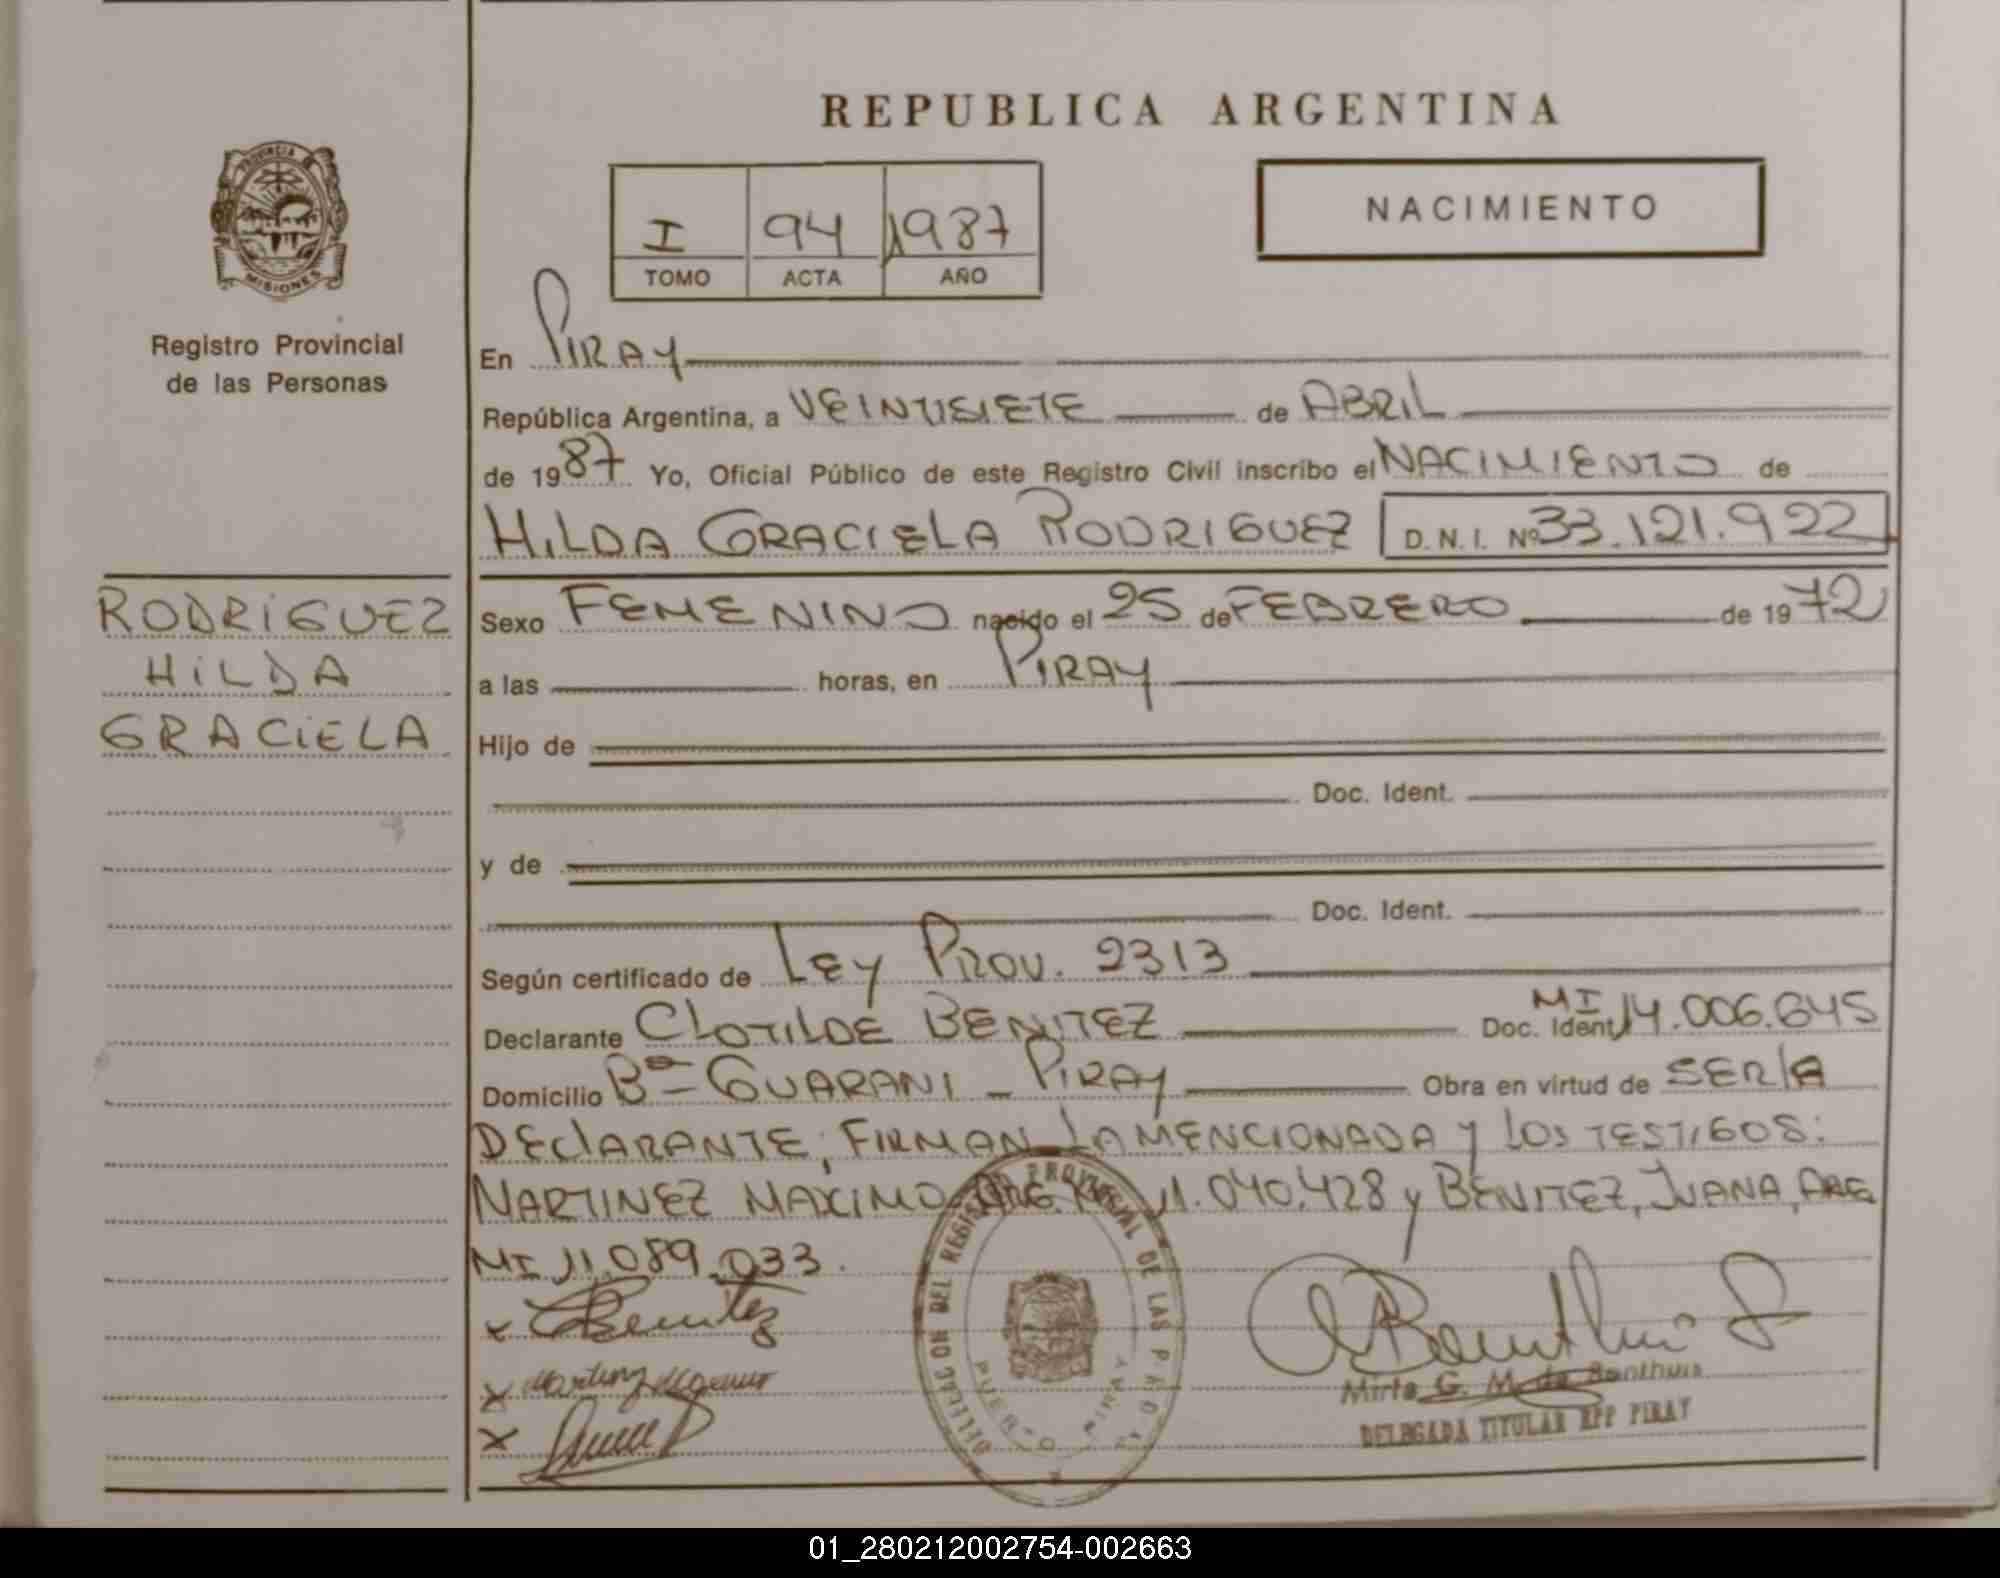 REPUBLICA ARGENTINA
PROVINCIA DE
MISIONES
Registro Provincial
de las Personas
I 94 1987
TOMO ACTA AÑO
NACIMIENTO
En PIRAY
República Argentina, a VEINTISIETE de ABRIL
de 1987 Yo, Oficial Público de este Registro Civil inscribo el NACIMIENTO de
HILDA GRACIELA RODRIGUEZ D.N.I. Nº 33.121.922
RODRIGUEZ
HILDA
GRACIELA
Sexo FEMENINO nacido el 25 de FEBRERO de 1972
a las horas, en PIRAY
Hijo de
Doc. Ident.
y de
Doc. Ident.
Según certificado de LEY PROV. 2313
Declarante CLOTILDE BENITEZ Doc. Ident. MI 14.006.645
Domicilio Bº GUARANI - PIRAY Obra en virtud de SER LA
DECLARANTE; FIRMAN LA MENCIONADA Y LOS TESTIGOS:
MARTINEZ MAXIMO ARG. 11.040.428 y BENITEZ, JUANA, ARG
MI 11.089.033.
x Benitez
x Martinez
x
DELEGACION DEL REGISTRO PROVINCIAL DE LAS PERSONAS
PUERTO PIRAY
Mirta G. M. de Bonthuis
DELEGADA TITULAR RPP PIRAY
01_280212002754-002663